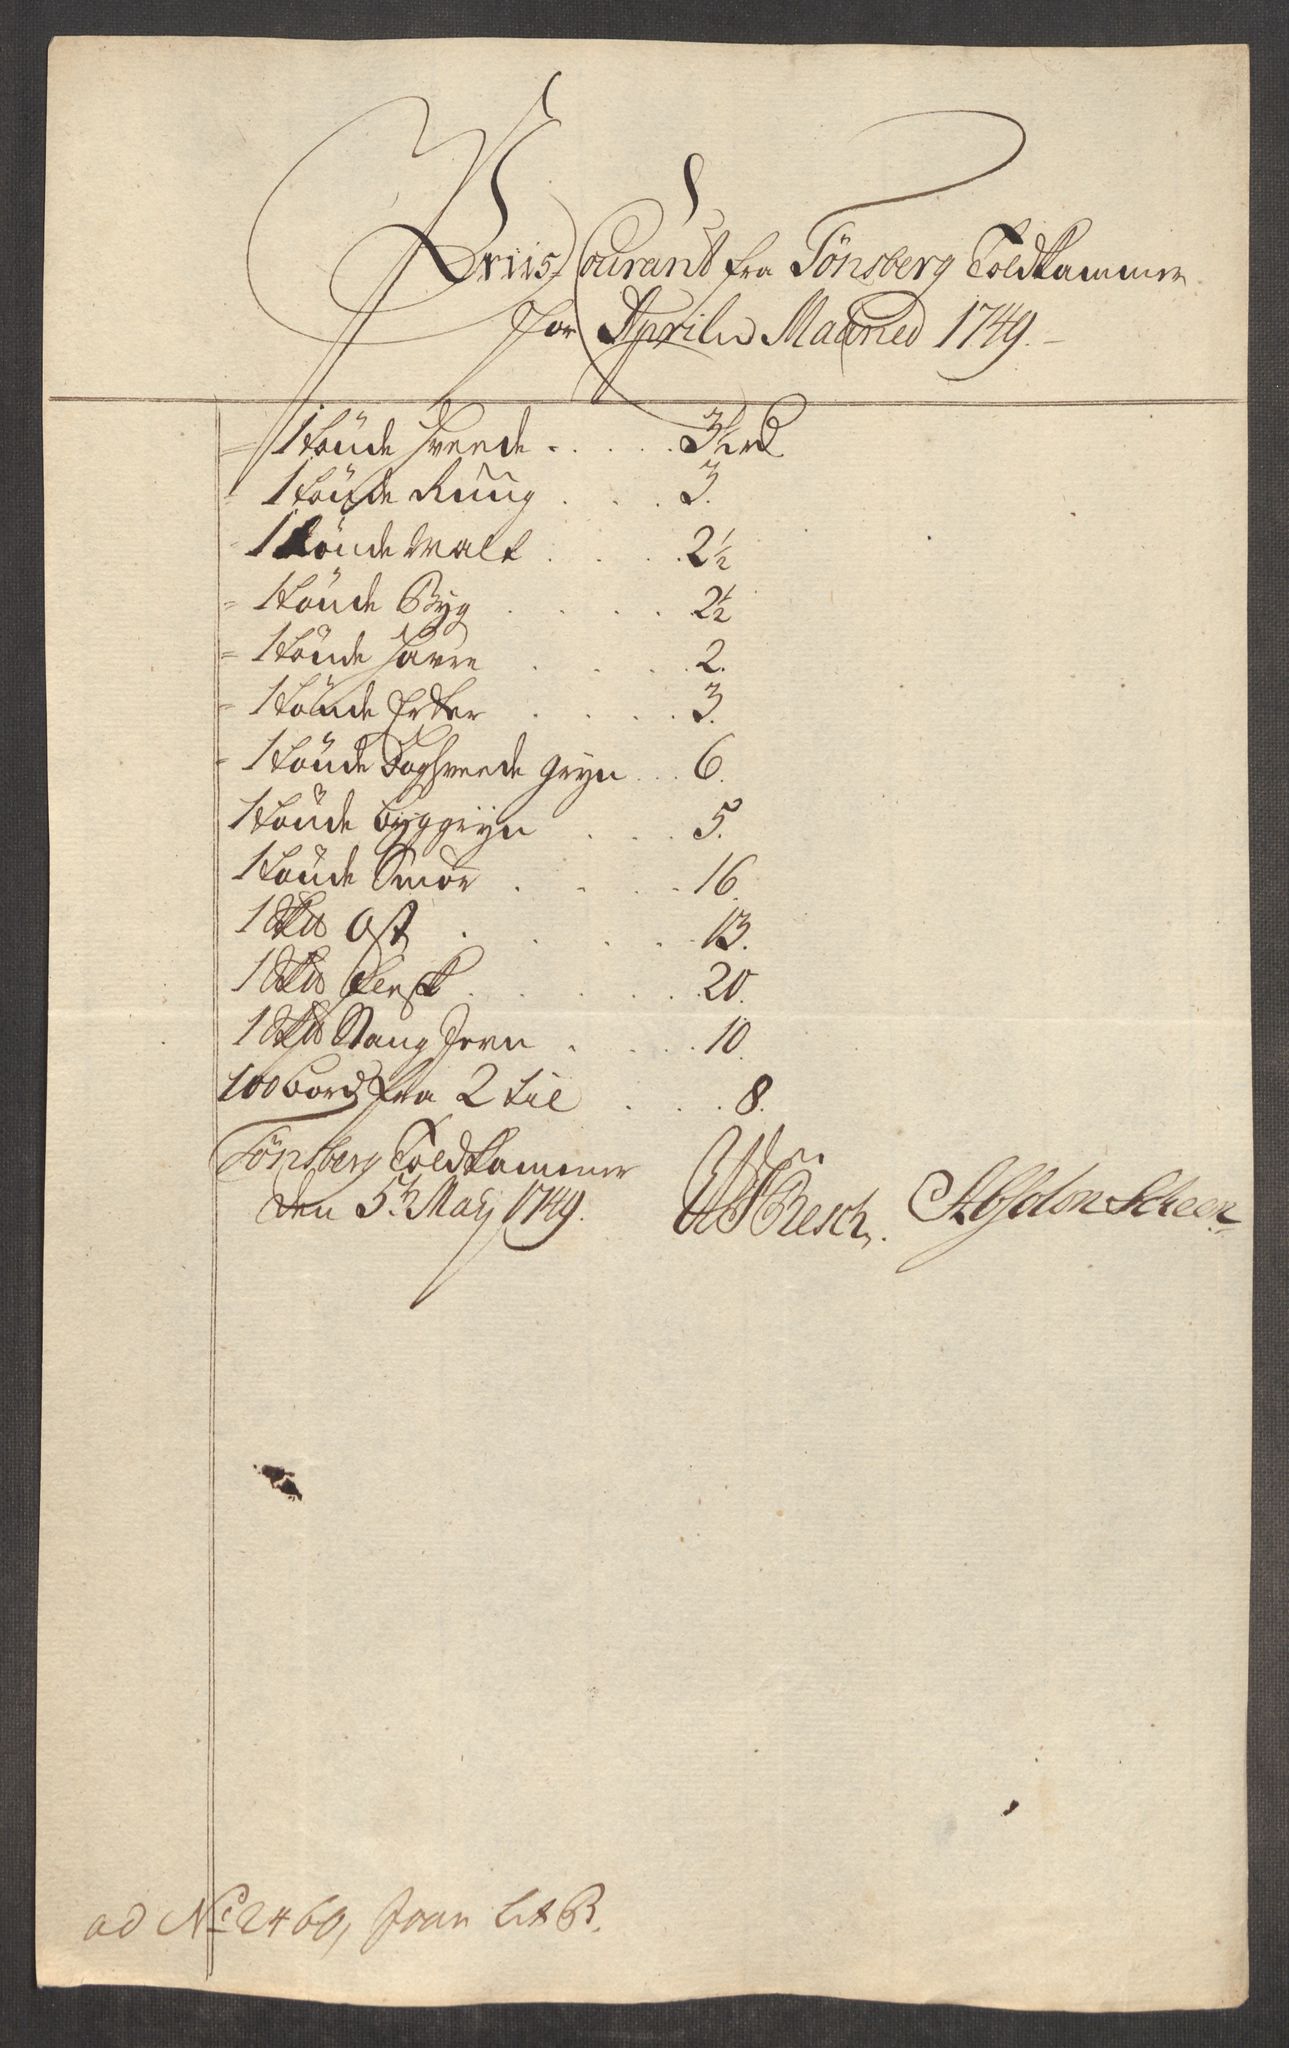 Priis Courant fra Tönsberg Toldkammer
for Aprilis Maaned 1749.
1 tönde Hveede 3½ rd
1 tönde Rüüg 3.
1 tönde Malt 2½
1 tönde Byg 2½
1 tönde Havre 2.
1 tönde Erter 3.
1 tönde Boghveede gryn 6.
1 tönde byggryn 5.
1 tönde Smör 16.
1 Skp Ost 13.
1 Skp Flesk 20.
1 Skp Stang Jern 10.
100 bord fra 2 til 8.
Tönsberg Toldkammer
den 5t May 1749.
Resch. Absolon Scheen
ad No 2460, Lit B.